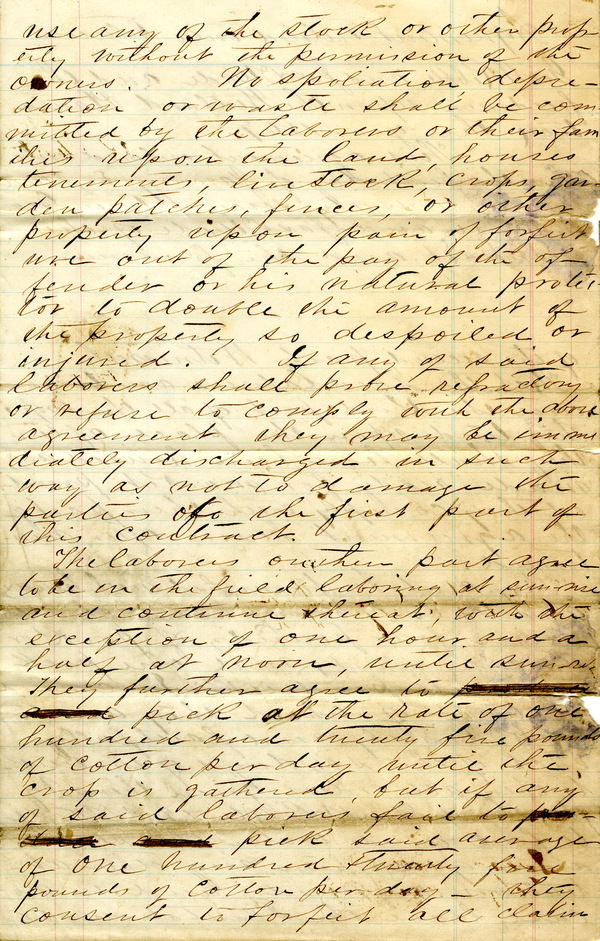 use any of the stock or other prop-
erty without the permission of the
owners. No spoliation, depre-
dation or waste shall be com
mitted by the Laborers or their fam
ilies upon the land, houses
tenements, livestock, crops, gar-
den patches, fences, or other
property upon pain of forfeit
ure out of the pay of the of-
fender or his natural protec-
tor to double the amount of
the property so despoiled or
injured. If any of said
laborers shall prove refractory
or refuse to comply with the above
agreement they may be imme
diately discharged in such
way as not to damage the
parties of the first part of
this contract.
The laborers on their part agree
to be in the field laboring at sun-rise
and continue thereat, with the
exception of one hour and a
half at noon, until sun-set.
They further agree to
pick at the rate of one
hundred and twenty five pounds
of cotton per day until the
crop is gathered, but if any
of said laborers fail to
pick said average
of one hundred & twenty five
pounds of cotton per day - they
consent to forfeit all claim